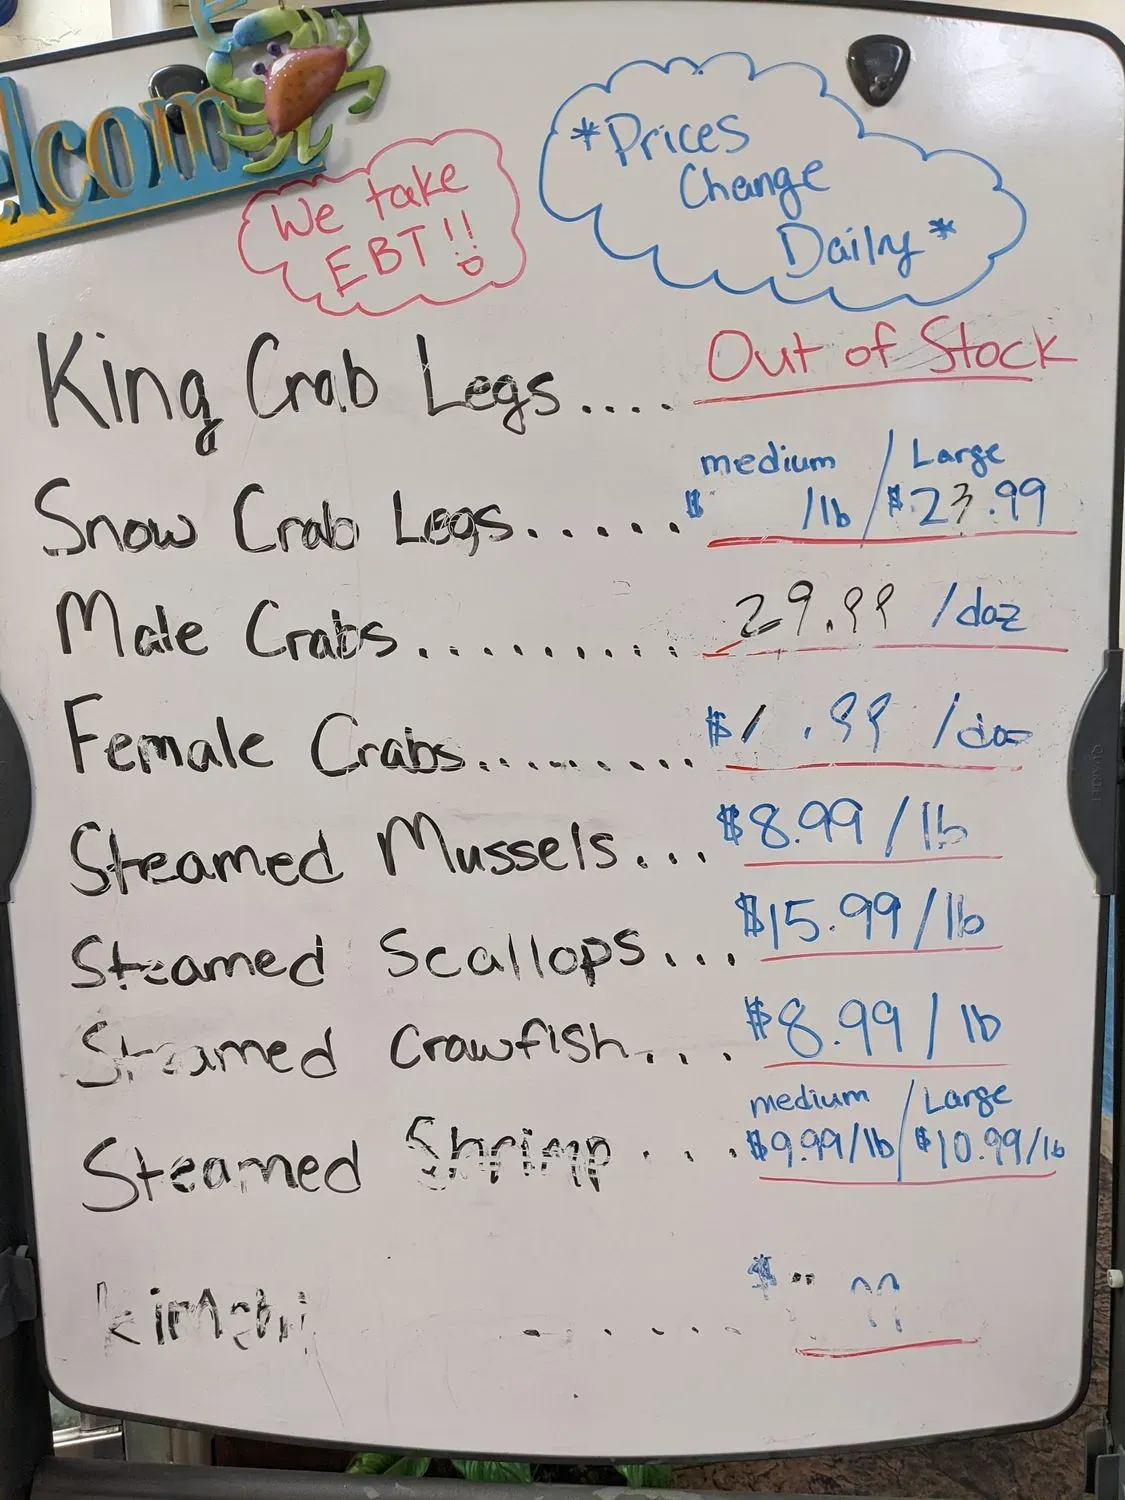 elcome
We take
EBT!!
*Prices
Change
Daily*
King Crab Legs.... Out of Stock
medium / Large
Snow Crab Legs...... $ /lb / $23.99
Male Crabs.......... 29.99 /doz
Female Crabs.......... $ .99 /doz
Steamed Mussels... $8.99/lb
Steamed Scallops... $15.99/lb
Steamed Crawfish.... $8.99/lb
medium / Large
Steamed Shrimp.... $9.99/lb / $10.99/lb
kimchi ...... $